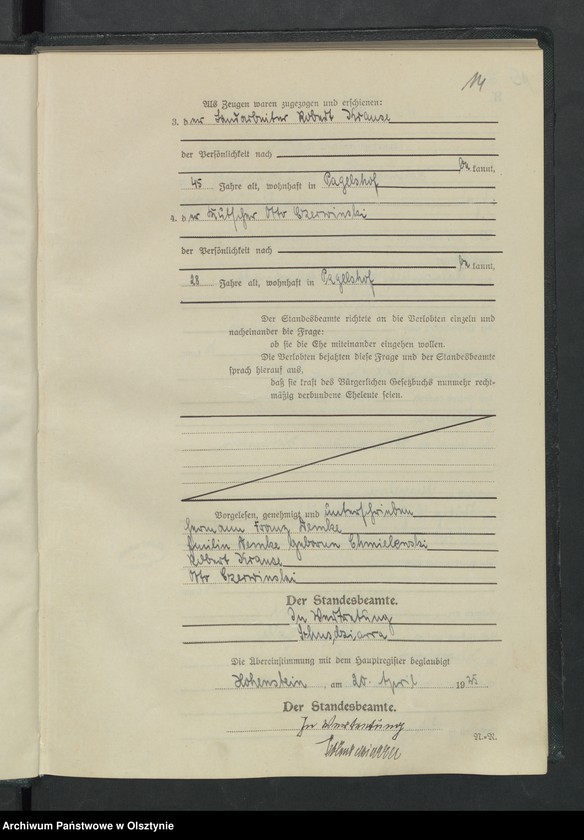 14
Als Zeugen waren zugezogen und erschienen:
3. der Landarbeiter Robert Krause
der Persönlichkeit nach
be kannt,
45 Jahre alt, wohnhaft in Pagelshof
4. der Kutscher Otto Czerwinski
der Persönlichkeit nach
be kannt,
28 Jahre alt, wohnhaft in Pagelshof
Der Standesbeamte richtete an die Verlobten einzeln und
nacheinander die Frage:
ob sie die Ehe miteinander eingehen wollen.
Die Verlobten bejahten diese Frage und der Standesbeamte
sprach hierauf aus,
daß sie kraft des Bürgerlichen Gesetzbuchs nunmehr recht-
mäßig verbundene Eheleute seien.
Vorgelesen, genehmigt und unterschrieben
Hermann Franz Lemke
Emilie Lemke geborene Chmielewski
Robert Krause
Otto Czerwinski
Der Standesbeamte.
In Vertretung
Die Übereinstimmung mit dem Hauptregister beglaubigt
Hohenstein, am 20. April 1935
Der Standesbeamte.
In Vertretung
Archiwum Państwowe w Olsztynie